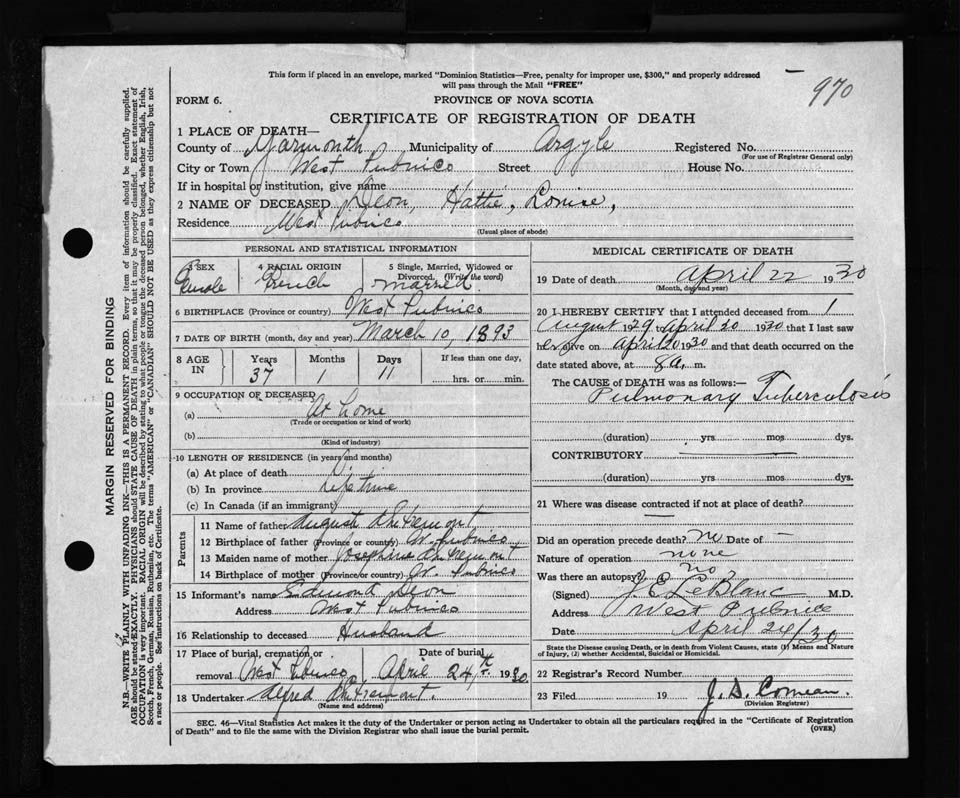 This form if placed in an envelope, marked "Dominion Statistics—Free, penalty for improper use, $300," and properly addressed
will pass through the Mail "FREE"
970
FORM 6.
PROVINCE OF NOVA SCOTIA
CERTIFICATE OF REGISTRATION OF DEATH
1 PLACE OF DEATH—
County of Yarmouth Municipality of Argyle Registered No.
(For use of Registrar General only)
City or Town West Pubnico Street House No.
If in hospital or institution, give name
2 NAME OF DECEASED Deon, Hattie, Louise,
Residence West Pubnico
(Usual place of abode)
PERSONAL AND STATISTICAL INFORMATION
3 SEX Female 4 RACIAL ORIGIN French 5 Single, Married, Widowed or Divorced. (Write the word) married.
6 BIRTHPLACE (Province or country) West Pubnico
7 DATE OF BIRTH (month, day and year) March 10, 1893
8 AGE IN Years 37 Months 1 Days 11 If less than one day, hrs. or min.
9 OCCUPATION OF DECEASED
(a) At home
(Trade or occupation or kind of work)
(b)
(Kind of industry)
10 LENGTH OF RESIDENCE (in years and months)
(a) At place of death
(b) In province lifetime
(c) In Canada (if an immigrant)
Parents
11 Name of father August d'Entremont
12 Birthplace of father (Province or country) W. Pubnico
13 Maiden name of mother Josephine d'Entremont
14 Birthplace of mother (Province or country) W. Pubnico
15 Informant's name Edmond Deon
Address West Pubnico
16 Relationship to deceased Husband
17 Place of burial, cremation or removal West Pubnico Date of burial April 24th 1930.
18 Undertaker Alfred d'Entremont.
(Name and address)
MEDICAL CERTIFICATE OF DEATH
19 Date of death April 22 1930
(Month, day and year)
20 I HEREBY CERTIFY that I attended deceased from 1
August 1929 to April 20 1930 that I last saw
her alive on April 20 1930 and that death occurred on the
date stated above, at 8 a. m.
The CAUSE of DEATH was as follows:—
Pulmonary Tuberculosis
(duration) yrs. mos. dys.
CONTRIBUTORY
(duration) yrs. mos. dys.
21 Where was disease contracted if not at place of death?
—
Did an operation precede death? no Date of —
Nature of operation none
Was there an autopsy? no
(Signed) J E LeBlanc M.D.
Address West Pubnico
Date April 24/30
State the Disease causing Death, or in death from Violent Causes, state (1) Means and Nature
of Injury, (2) whether Accidental, Suicidal or Homicidal.
22 Registrar's Record Number
23 Filed 19 J. D. Comeau.
(Division Registrar)
SEC. 46—Vital Statistics Act makes it the duty of the Undertaker or person acting as Undertaker to obtain all the particulars required in the "Certificate of Registration
of Death" and to file the same with the Division Registrar who shall issue the burial permit.
(OVER)
MARGIN RESERVED FOR BINDING
N.B.—WRITE PLAINLY WITH UNFADING INK—THIS IS A PERMANENT RECORD. Every item of information should be carefully supplied.
AGE should be stated EXACTLY. PHYSICIANS should STATE CAUSE OF DEATH in plain terms, so that it may be properly classified. Exact statement of
OCCUPATION is very important. RACIAL ORIGIN will be described by stating to what people or tongue the deceased person belonged, whether English, Irish,
Scotch, French, German, Russian, Ruthenian, etc. The terms "AMERICAN" or "CANADIAN" SHOULD NOT BE USED as they express citizenship but not
a race or people. See instructions on back of Certificate.